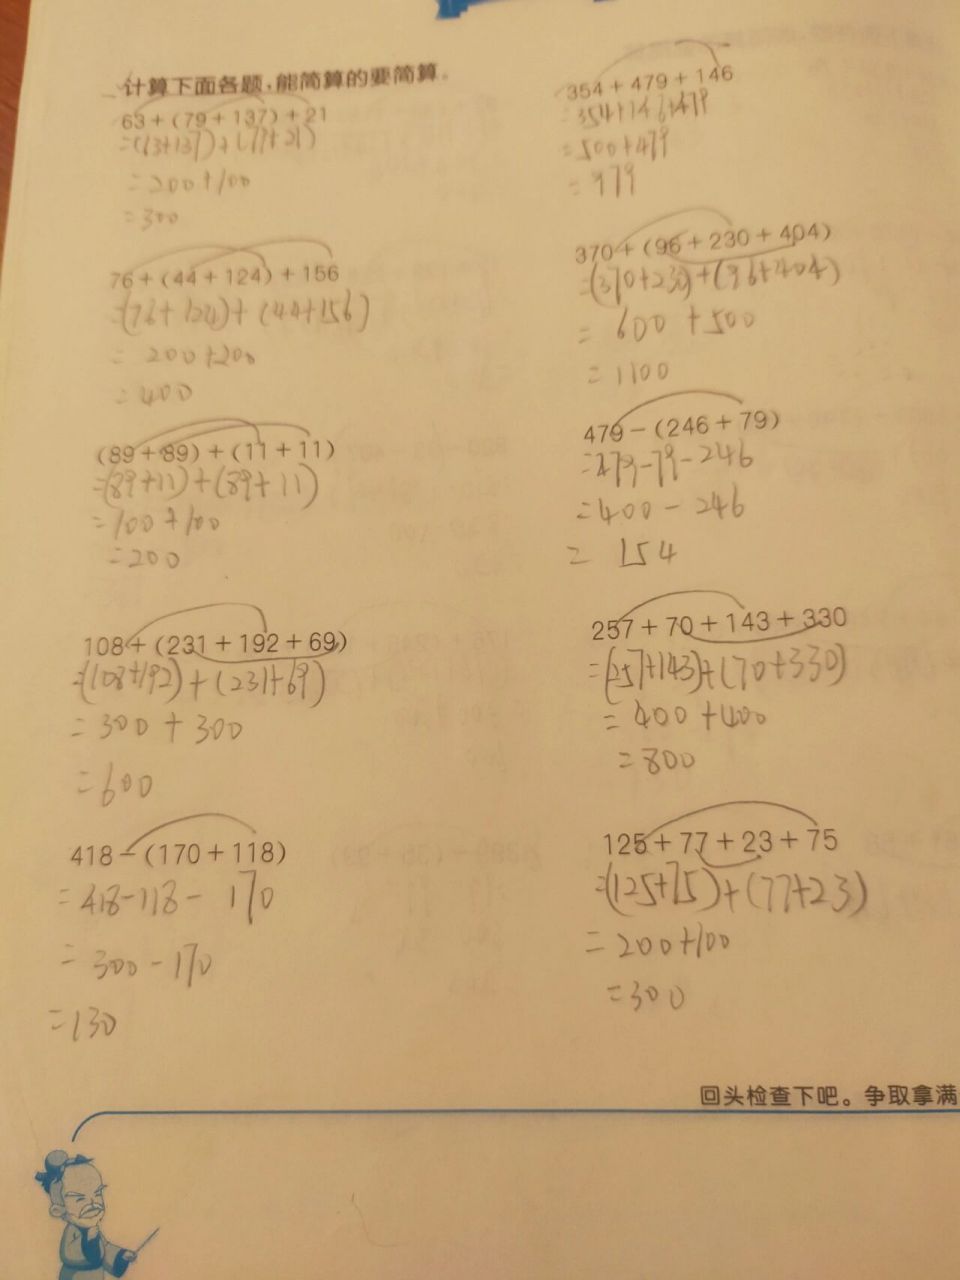 计算下面各题，能简算的要简算。
63＋(79＋137)＋21
=(63+137)+(79+21)
=200+100
=300
76＋(44＋124)＋156
=(76+124)+(44+156)
=200+200
=400
(89＋89)＋(11＋11)
=(89+11)+(89+11)
=100+100
=200
108＋(231＋192＋69)
=(108+192)+(231+69)
=300+300
=600
418－(170＋118)
=418-118-170
=300-170
=130
354＋479＋146
=354+146+479
=500+479
=979
370＋(96＋230＋404)
=(370+230)+(96+404)
=600+500
=1100
479－(246＋79)
=479-79-246
=400-246
=154
257＋70＋143＋330
=(257+143)+(70+330)
=400+400
=800
125＋77＋23＋75
=(125+75)+(77+23)
=200+100
=300
回头检查下吧。争取拿满